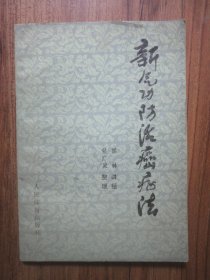 新气功防治癌症法
郭林讲授
整理
人民体育出版社